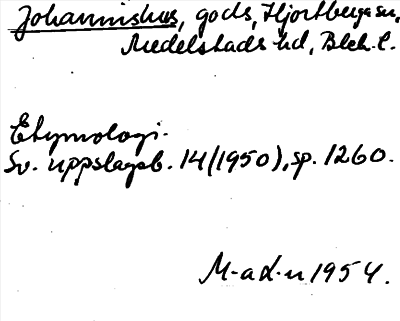 Johannishus, gods, Hjortsberga sn,
Medelstads hd, Blek. l.
Etymologi.
Sv. uppslagsb. 14 (1950), sp. 1260.
M-ad-n 1954.